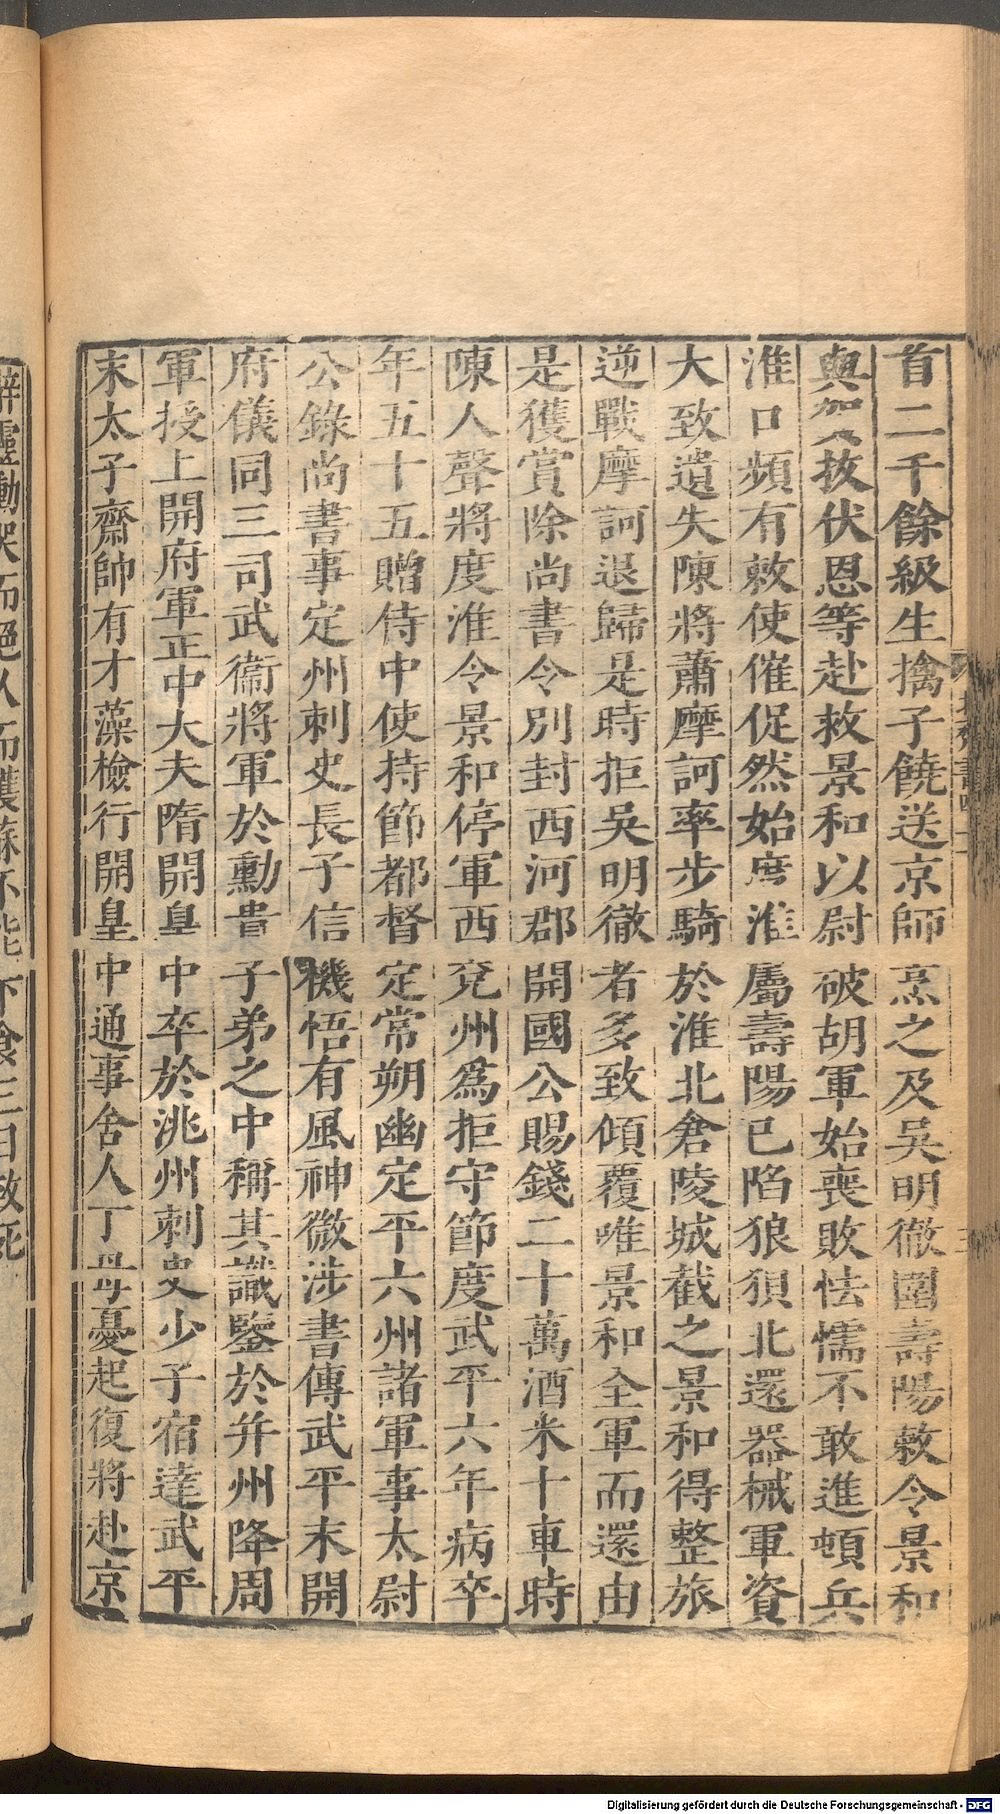 首二千餘級生擒子饒送京師烹之及吳明徹圍壽陽敕令景和
與賀拔伏恩等赴救景和以尉破胡軍始喪敗怯懦不敢進頓兵
淮口頻有敕使催促然始度淮屬壽陽已陷狼狽北還器械軍資
大致遺失陳將蕭摩訶率步騎於淮北倉陵城截之景和得整旅
逆戰摩訶退歸是時拒吳明徹者多致傾覆唯景和全軍而還由
是獲賞除尚書令別封西河郡開國公賜錢二十萬酒米十車時
陳人聲將度淮令景和停軍西兗州爲拒守節度武平六年病卒
年五十五贈侍中使持節都督定常朔幽定平六州諸軍事太尉
公錄尚書事定州刺史長子信機悟有風神微涉書傳武平末開
府儀同三司武衞將軍於勳貴子弟之中稱其識鑒於并州降周
軍授上開府軍正中大夫隋開皇中卒於洮州刺史少子宿達武平
末太子齋帥有才藻檢行開皇中通事舍人丁母憂起復將赴京
辭靈慟哭而絕久而獲蘇不能下食三日致死
Digitalisierung gefördert durch die Deutsche Forschungsgemeinschaft - DFG